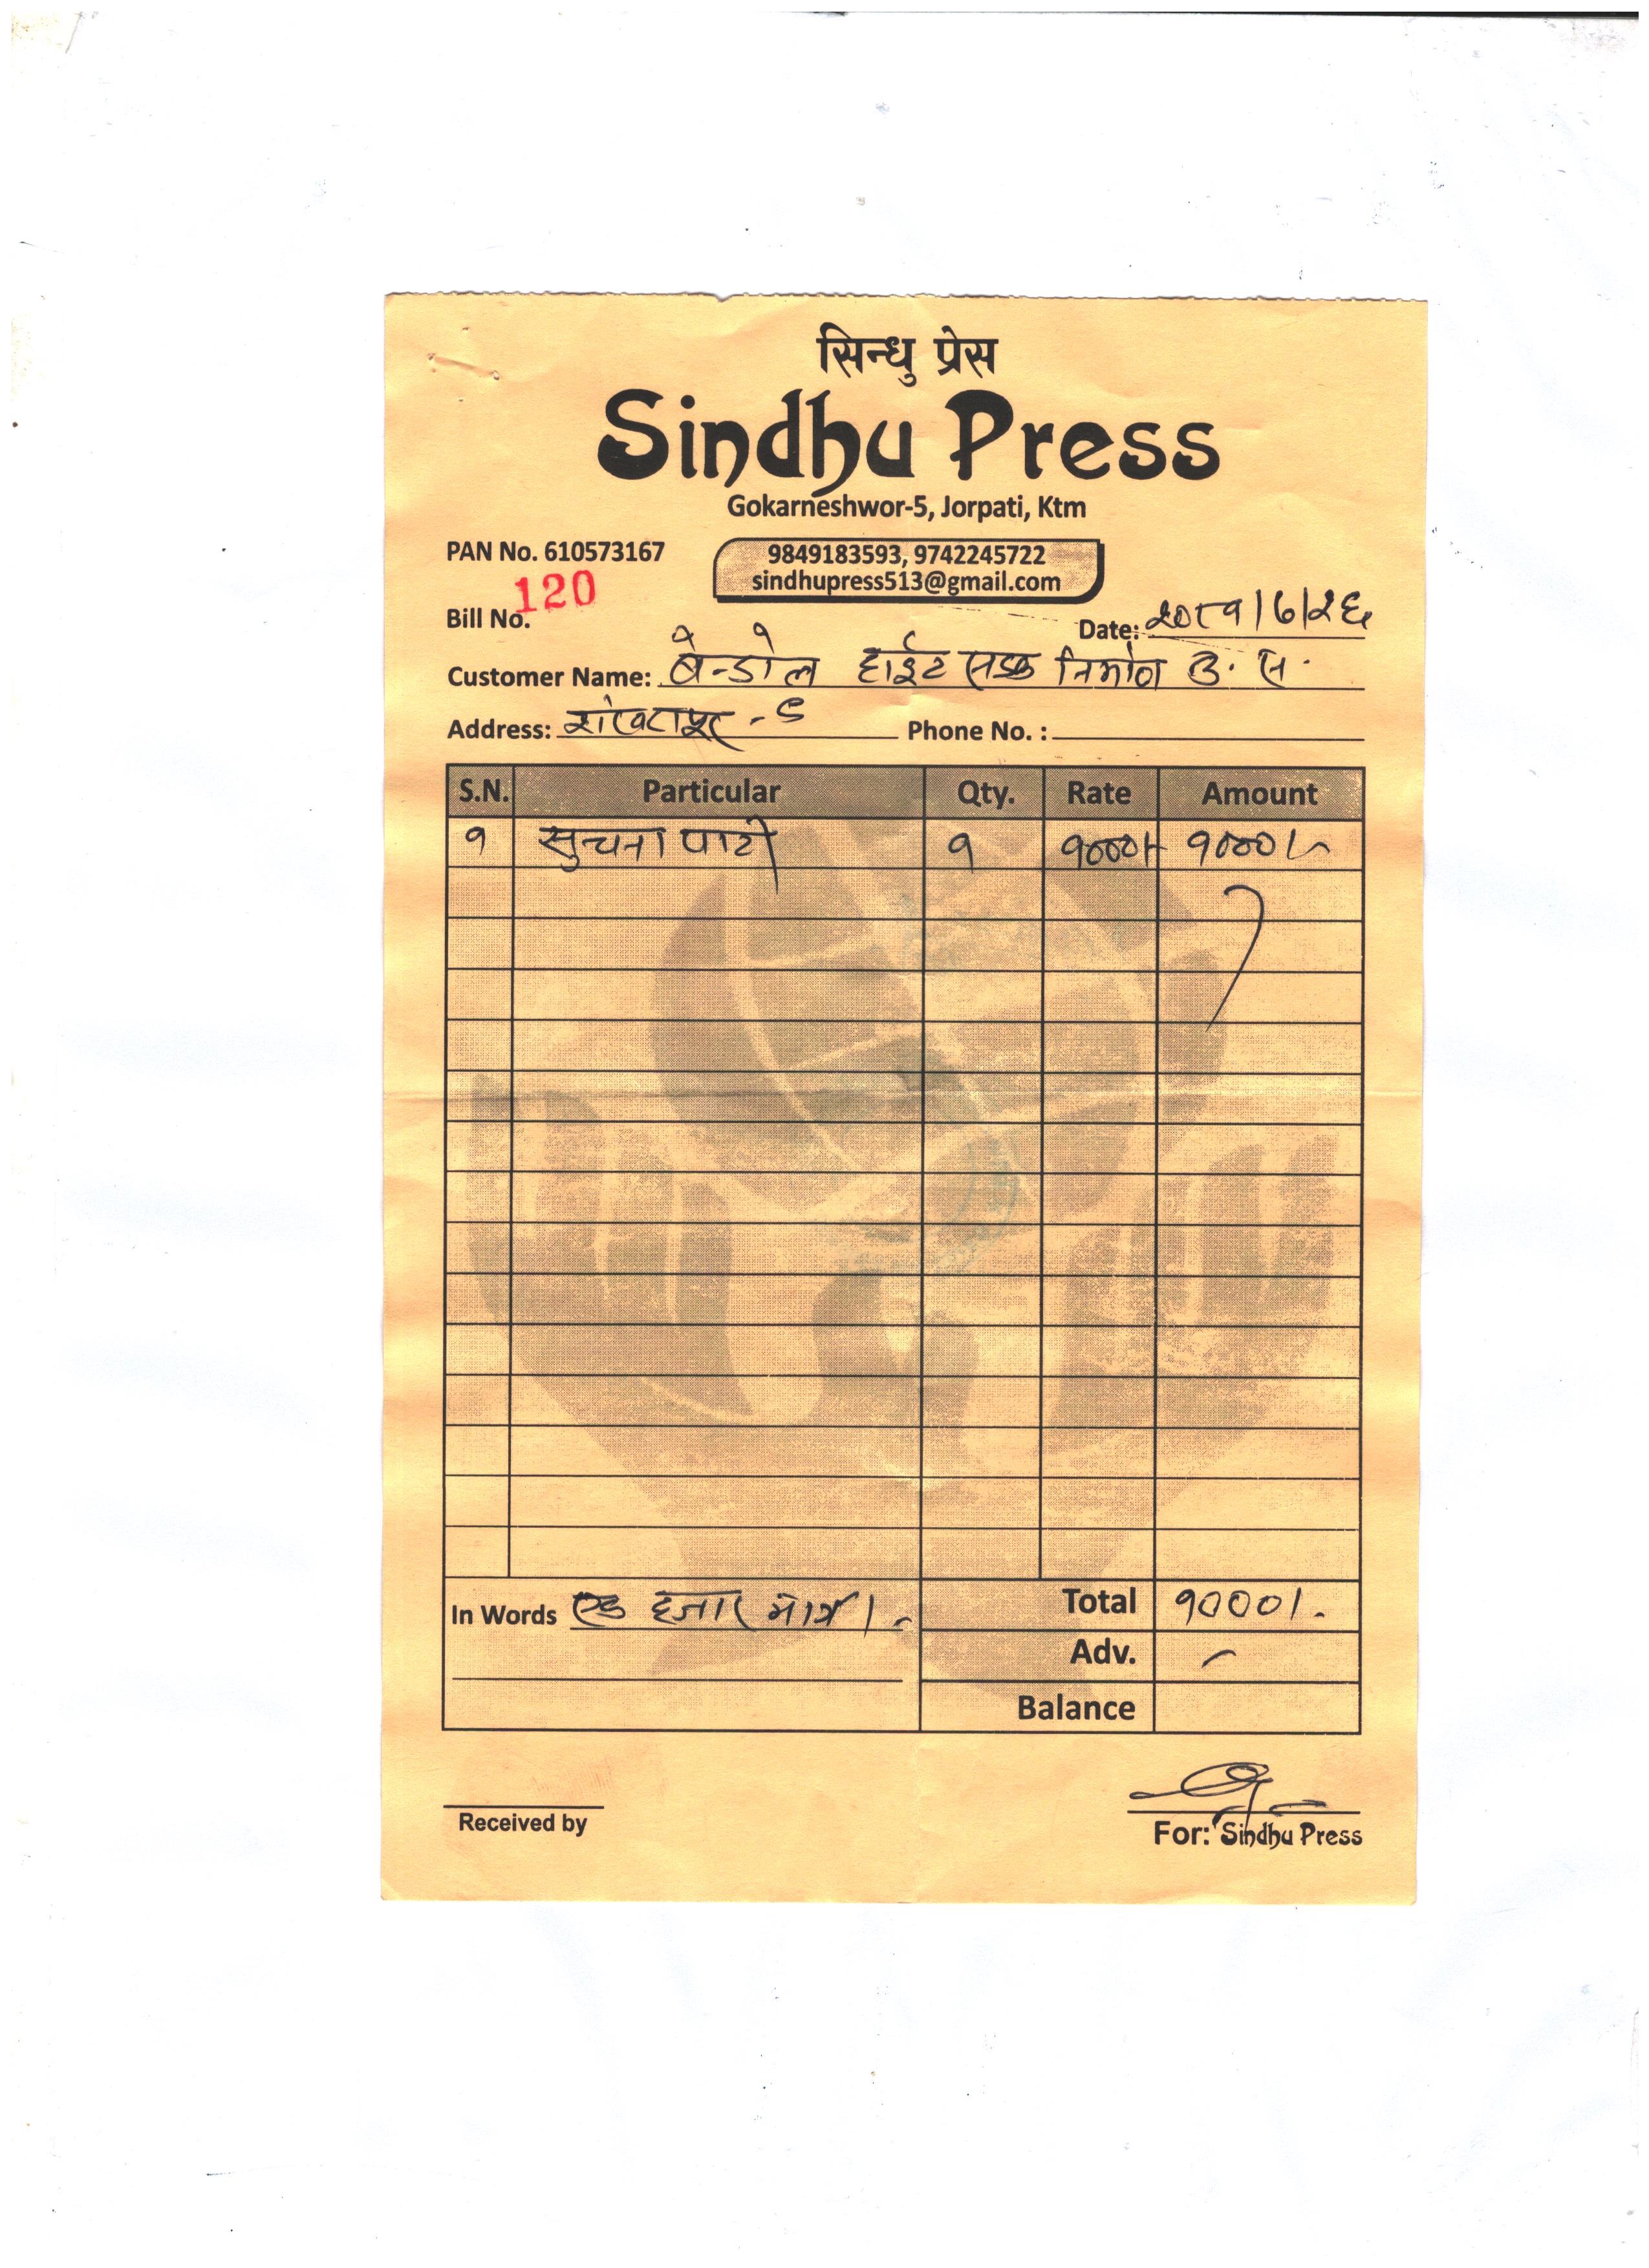 सिन्धु प्रेस
Sindhu Press
Gokarneshwor-5, Jorpati, Ktm
PAN No. 610573167
9849183593, 9742245722
sindhupress513@gmail.com
Bill No. 120
Date: २०८१/6/२६
Customer Name: बेन्डोल हाईट सडक निर्माण उ. स.
Address: शंखरापुर - ८
Phone No. :
S.N. Particular Qty. Rate Amount
१ सुचना पाटी १ १०००/- १०००/-
In Words एक हजार मात्र।- Total १०००/-
Adv. -
Balance
Received by
For: Sindhu Press